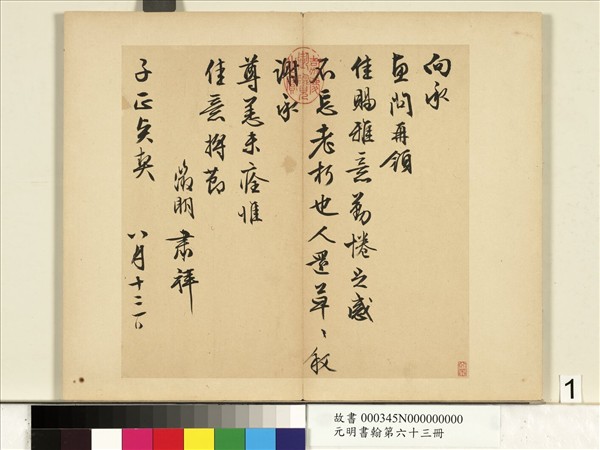 向承
惠問再領
佳賜雅意勤惓足感
不忘老朽也人還草〻敘
謝承
尊恙未痊惟
佳意將節
徵明肅拜
子正貞契 八月十三日
1
故書 000345N000000000
元明書翰第六十三冊